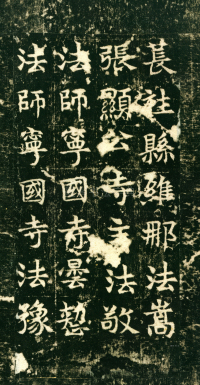 長社縣維那法嵩
張顯公寺主法敬
法師寧國寺曇慜
法師寧國寺法豫